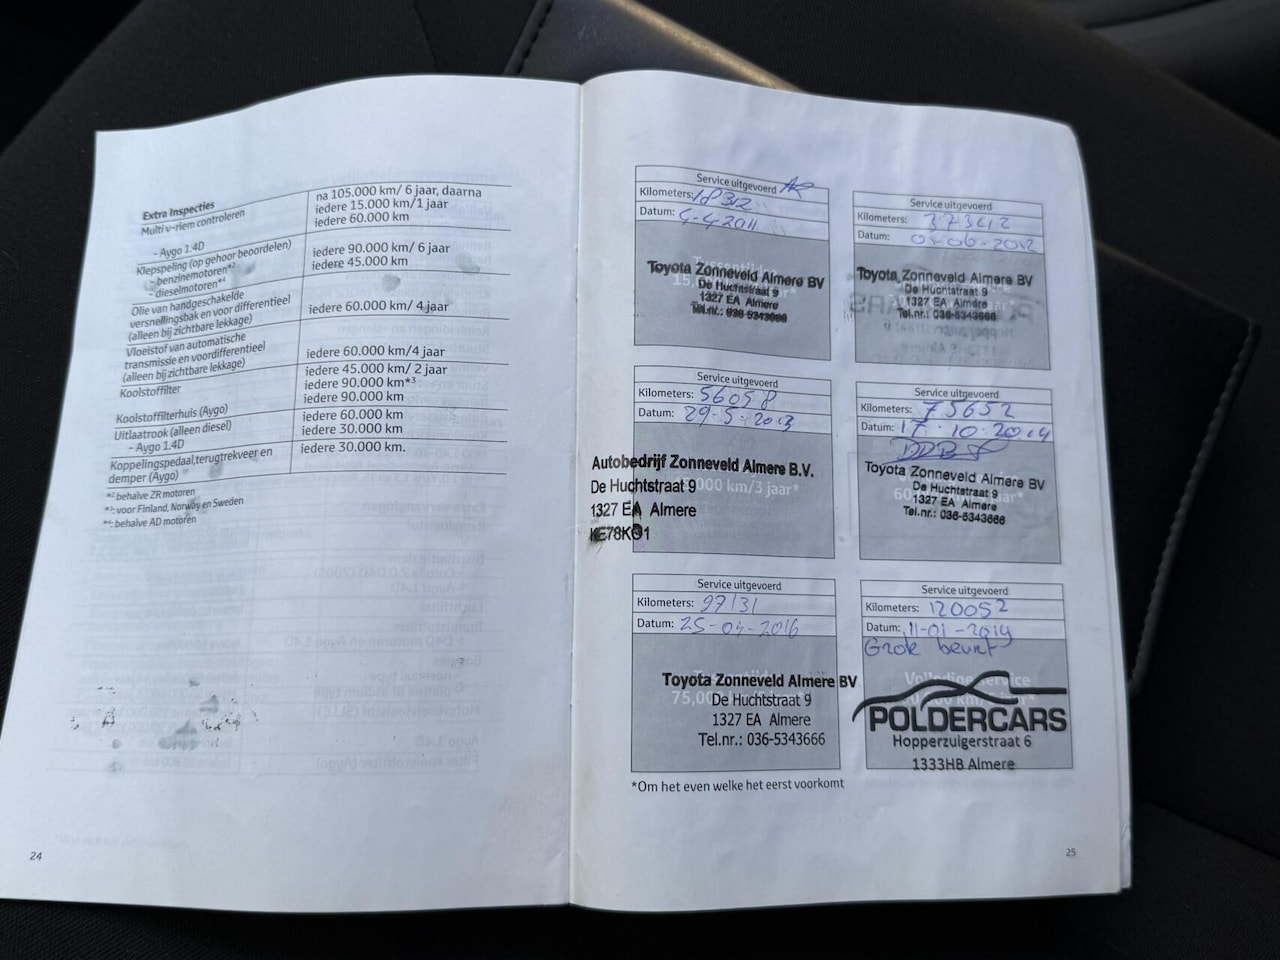 Extra Inspecties
Multi v-riem controleren
na 105.000 km/ 6 jaar, daarna
iedere 15.000 km/1 jaar
- Aygo 1.4D
iedere 60.000 km
Klepspeling (op gehoor beoordelen)
- benzinemotoren*²
iedere 90.000 km/ 6 jaar
- dieselmotoren*⁴
iedere 45.000 km
Olie van handgeschakelde
versnellingsbak en voor differentieel
(alleen bij zichtbare lekkage)
iedere 60.000 km / 4 jaar
Vloeistof van automatische
transmissie en voordifferentieel
(alleen bij zichtbare lekkage)
iedere 60.000 km/4 jaar
Koolstoffilter
iedere 45.000 km/ 2 jaar
iedere 90.000 km*³
Koolstoffilterhuis (Aygo)
iedere 90.000 km
Uitlaatrook (alleen diesel)
iedere 60.000 km
- Aygo 1.4D
iedere 30.000 km
Koppelingspedaal,terugtrekveer en
demper (Aygo)
iedere 30.000 km.
*² behalve ZR motoren
*³: voor Finland, Norway en Sweden
*⁴: behalve AD motoren
24
Service uitgevoerd
Kilometers: 18312
Datum: 4-4-2011
Toyota Zonneveld Almere BV
De Huchtstraat 9
1327 EA Almere
Tel.nr.: 036-5343666
Service uitgevoerd
Kilometers: 37342
Datum: 01-06-2012
Toyota Zonneveld Almere BV
De Huchtstraat 9
1327 EA Almere
Tel.nr.: 036-5343666
Service uitgevoerd
Kilometers: 56058
Datum: 29-5-2013
Autobedrijf Zonneveld Almere B.V.
De Huchtstraat 9
1327 EA Almere
KE78KO1
000 km/3 jaar*
Service uitgevoerd
Kilometers: 75652
Datum: 17-10-2014
Toyota Zonneveld Almere BV
De Huchtstraat 9
1327 EA Almere
Tel.nr.: 036-5343666
Service uitgevoerd
Kilometers: 97131
Datum: 25-04-2016
Toyota Zonneveld Almere BV
75,000
De Huchtstraat 9
1327 EA Almere
Tel.nr.: 036-5343666
Service uitgevoerd
Kilometers: 120052
Datum: 11-01-2019
Grote beurt
Volledige service
POLDERCARS
Hopperzuigerstraat 6
1333HB Almere
*Om het even welke het eerst voorkomt
25